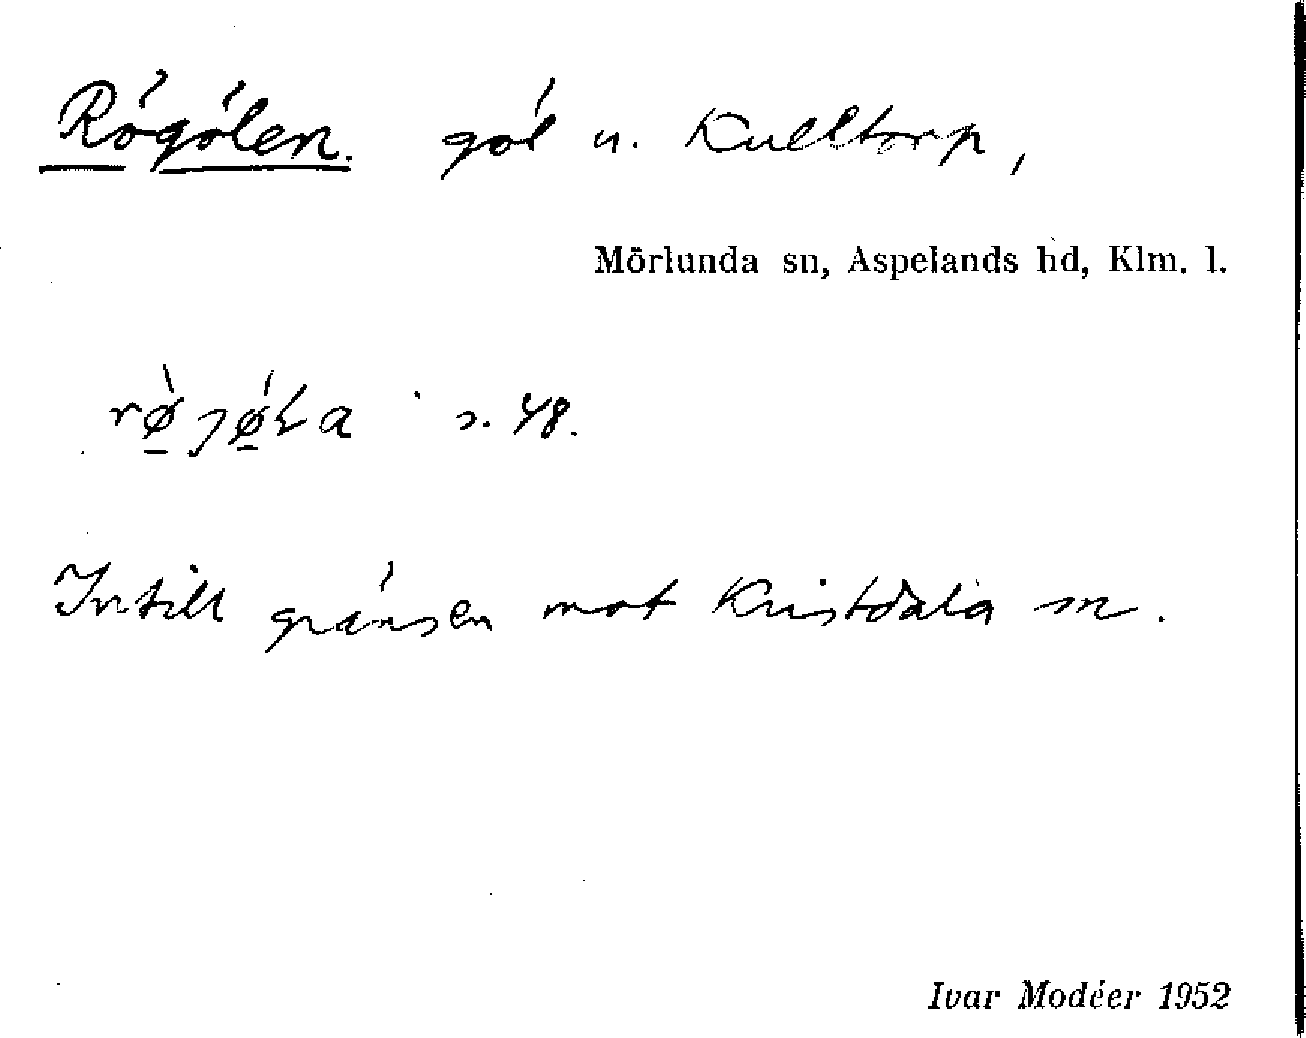 Rögölen. göl n. Kulltorp,
Mörlunda sn, Aspelands hd, Klm. l.
s. 48.
Intill gränsen mot Kristdala sn.
Ivar Modéer 1952